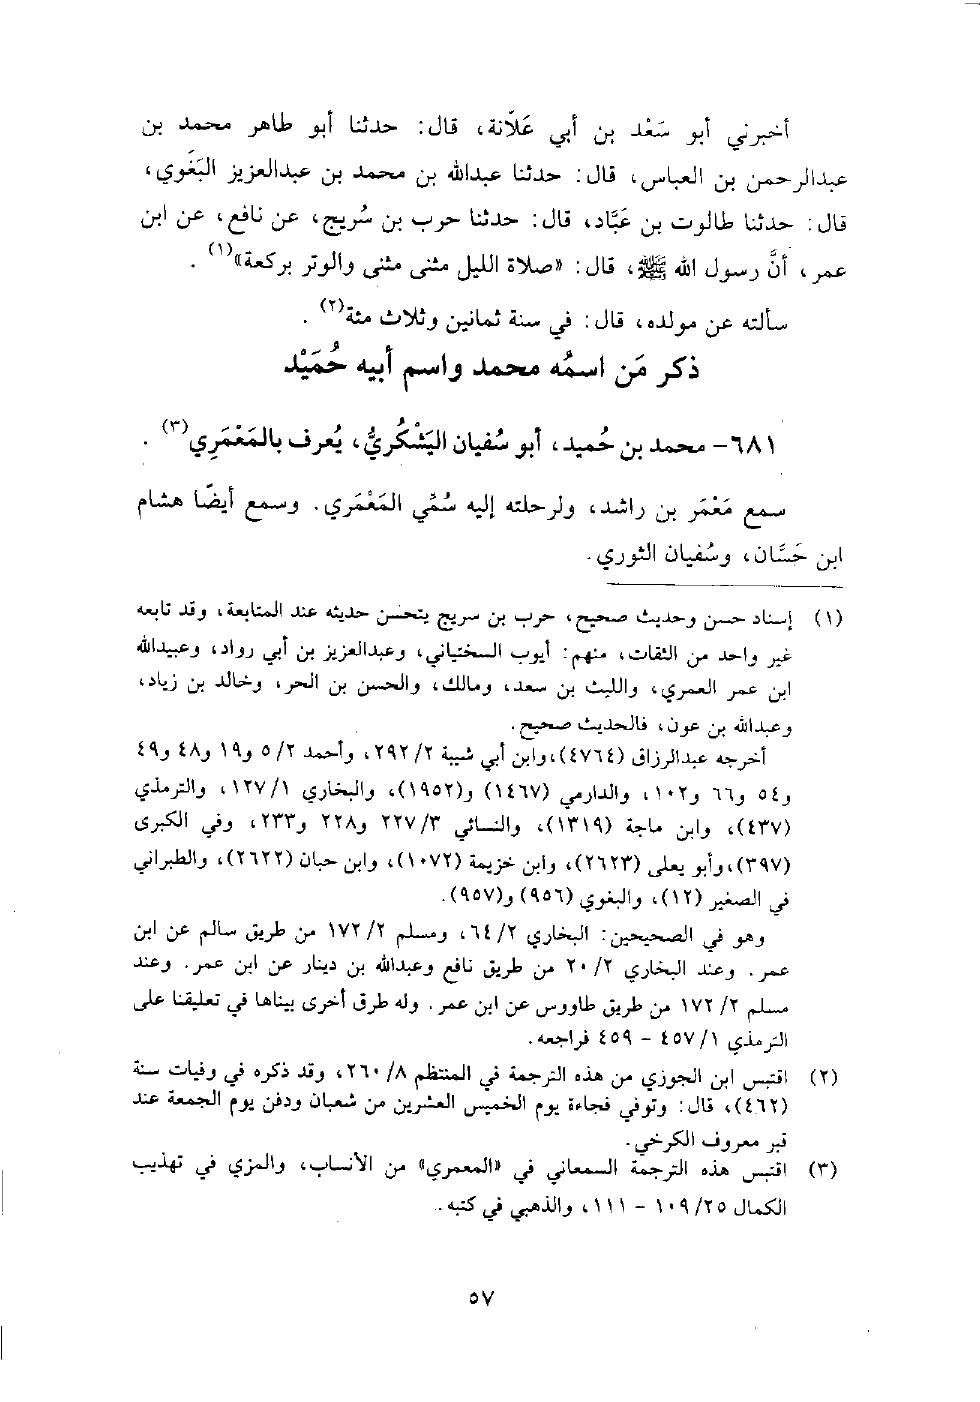 أخبرني أبو سَعْد بن أبي عَلَّانة، قال: حدثنا أبو طاهر محمد بن
عبدالرحمن بن العباس، قال: حدثنا عبدالله بن محمد بن عبدالعزيز البَغَوي،
قال: حدثنا طالوت بن عَبَّاد، قال: حدثنا حرب بن سُريج، عن نافع، عن ابن
عمر، أنَّ رسول الله ﷺ، قال: «صلاة الليل مثنى مثنى والوتر بركعة»(١) .
سألته عن مولده، قال: في سنة ثمانين وثلاث مئة(٢) .
ذكر مَن اسمُه محمد واسم أبيه حُمَيْد
٦٨١- محمد بن حُميد، أبو سُفيان اليَشْكُريُّ، يُعرف بالمَعْمَرِي(٣) .
سمع مَعْمَر بن راشد، ولرحلته إليه سُمِّي المَعْمَري. وسمع أيضًا هشام
ابن حَسَّان، وسُفيان الثوري.
(١) إسناد حسن وحديث صحيح، حرب بن سريج يتحسن حديثه عند المتابعة، وقد تابعه
غير واحد من الثقات، منهم: أيوب السختياني، وعبدالعزيز بن أبي رواد، وعبيدالله
ابن عمر العمري، والليث بن سعد، ومالك، والحسن بن الحر، وخالد بن زياد،
وعبدالله بن عون، فالحديث صحيح.
أخرجه عبدالرزاق (٤٧٦٤)، وابن أبي شيبة ٢/ ٢٩٢، وأحمد ٢/ ٥ و١٩ و٤٨ و٤٩
و٥٤ و٦٦ و١٠٢، والدارمي (١٤٦٧) و(١٩٥٢)، والبخاري ١/ ١٢٧، والترمذي
(٤٣٧)، وابن ماجة (١٣١٩)، والنسائي ٣/ ٢٢٧ و٢٢٨ و٢٣٣، وفي الكبرى
(٣٩٧)، وأبو يعلى (٢٦٢٣)، وابن خزيمة (١٠٧٢)، وابن حبان (٢٦٢٢)، والطبراني
في الصغير (١٢)، والبغوي (٩٥٦) و(٩٥٧).
وهو في الصحيحين: البخاري ٢/ ٦٤، ومسلم ٢/ ١٧٢ من طريق سالم عن ابن
عمر. وعند البخاري ٢/ ٢٠ من طريق نافع وعبدالله بن دينار عن ابن عمر. وعند
مسلم ٢/ ١٧٢ من طريق طاووس عن ابن عمر. وله طرق أخرى بيناها في تعليقنا على
الترمذي ١/ ٤٥٧ - ٤٥٩ فراجعه.
(٢) اقتبس ابن الجوزي من هذه الترجمة في المنتظم ٨/ ٢٦٠، وقد ذكره في وفيات سنة
(٤٦٢)، قال: وتوفي فجاءة يوم الخميس العشرين من شعبان ودفن يوم الجمعة عند
قبر معروف الكرخي.
(٣) اقتبس هذه الترجمة السمعاني في «المعمري» من الأنساب، والمزي في تهذيب
الكمال ٢٥/ ١٠٩ - ١١١، والذهبي في كتبه.
٥٧